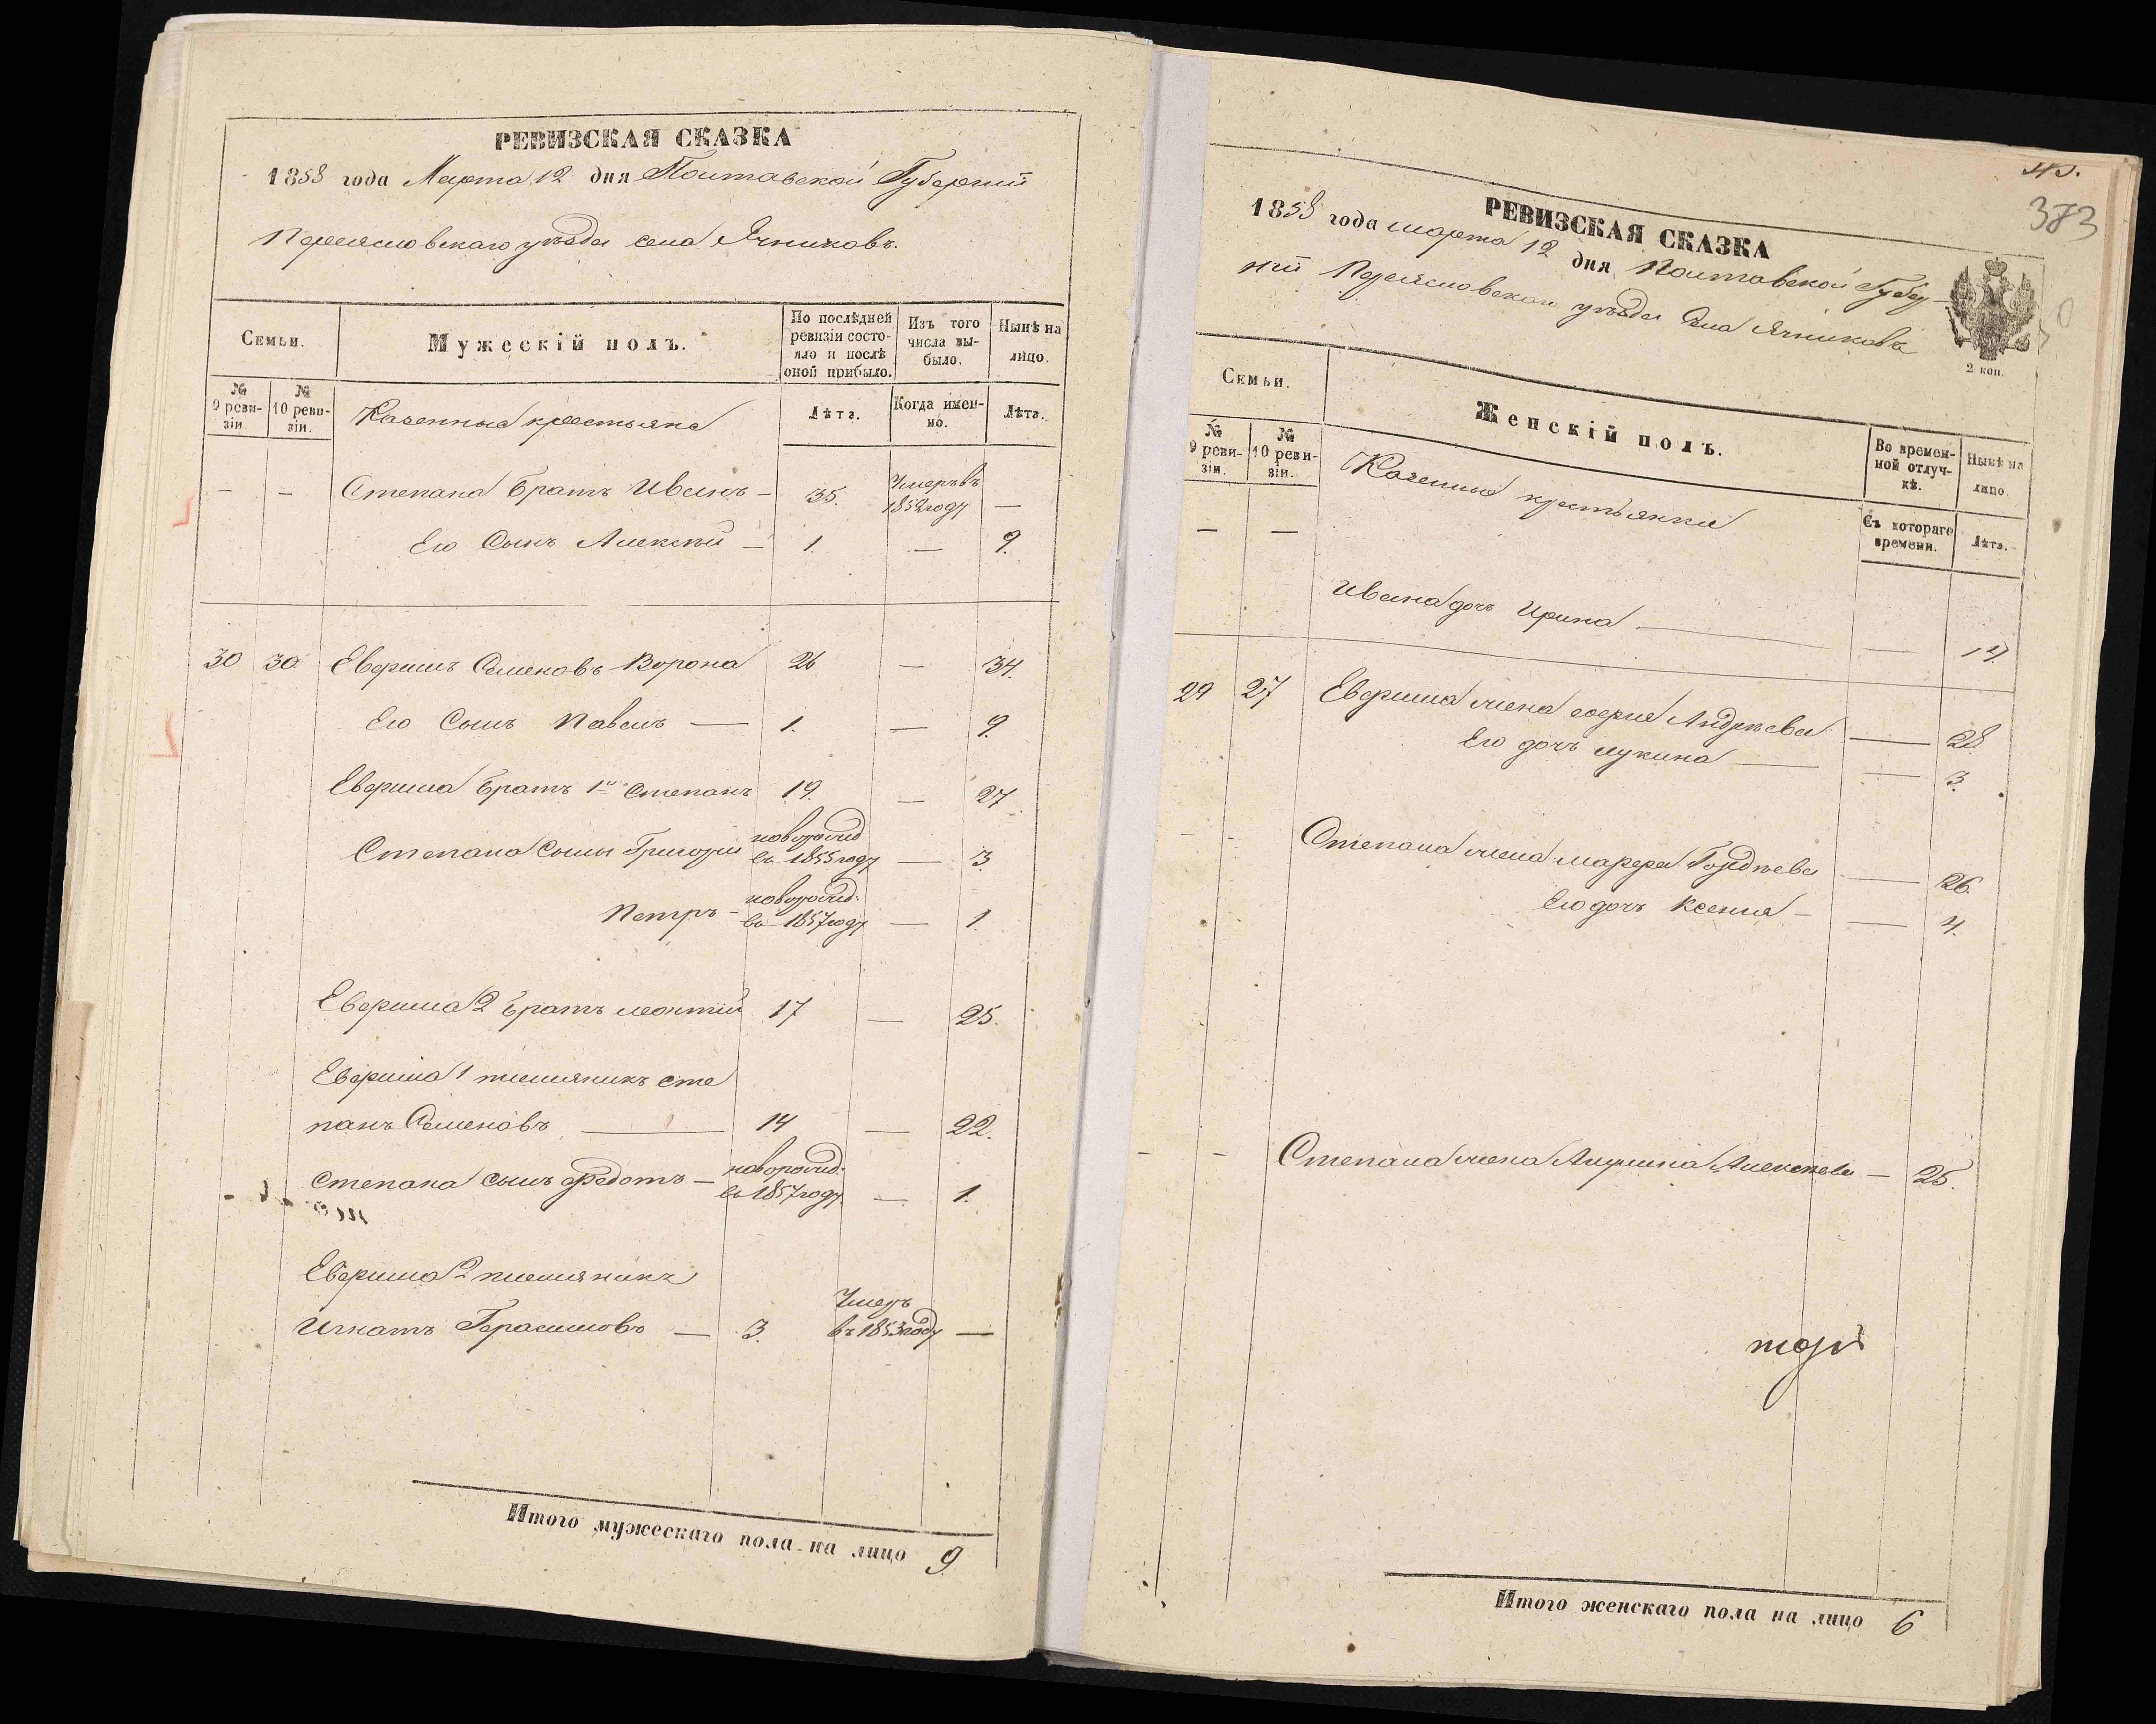 РЕВИЗСКАЯ СКАЗКА
1858 года Марта 12 дня Полтавской Губернии
Переяславскаго уезда села Ячниковъ.
Семьи.
Мужескій полъ.
По послѣдней ревизіи состо-яло и послѣ оной прибыло.
Изъ того числа вы-было.
Нынѣ на лицо.
№ 9 реви-зіи
№ 10 реви-зіи.
Казенные крестьяне
Лѣта.
Когда имен-но.
Лѣта.
— — Степана Братъ Иванъ — 35. Умеръ въ 1852 году —
Его Сынъ Алексѣй — 1. — 9.
30 30 Семеновъ Ворона 26 — 34.
Его Сынъ Павелъ — 1. — 9.
Братъ 1й Степанъ 19. — 27
Степана Сыны Григорій новорожд въ 1855 году — 3.
Петръ — новорожд: въ 1857 году — 1.
2 Братъ Леонтій 17 — 25.
1 племянникъ Сте
панъ Семеновъ — 14 — 22.
Степана Сынъ Федотъ — новорожд: въ 1857 году — 1.
2 племяникъ
Игнатъ Герасимовъ — 3. Умеръ въ 1853 году —
Итого мужескаго пола на лицо 9
45.
383
РЕВИЗСКАЯ СКАЗКА
1858 года марта 12 дня Полтавской Губер-
ніи Переясловскаго уѣзда Села Ячниковъ
2 коп.
Семьи.
Женскій полъ.
Во времен-ной отлуч-кѣ.
Нынѣ на лицо
№ 9 реви-зіи.
№ 10 реви-зіи.
Казенные крестьянки
Съ котораго времени.
Лѣта.
— —
Ивана дочь Ирина — — 14.
29 27 жена Андреева — 28
Его дочь — — 3.
- - Степана жена — 26.
Его дочь Ксения — — 4.
- - Степана жена Акулина Алексѣева — 25.
Итого женскаго пола на лицо 6